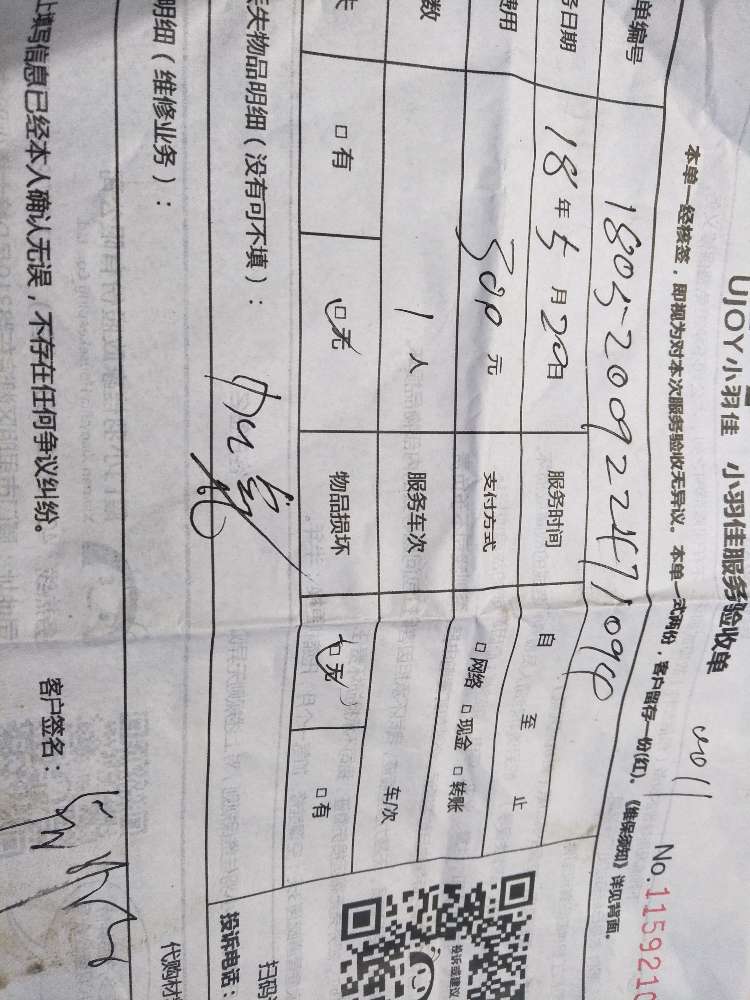 UJOY小羽佳 小羽佳服务验收单
No.1159210
本单一经核签，即视为对本次服务验收无异议。本单一式两份，客户留存一份(红)。《维保须知》详见背面。
单编号
务日期 18年5月20日 服务时间 自 至 止
费用 300元 支付方式 □网络 □现金 □转账
数 1人 服务车次 车/次
失 □有 □无 物品损坏 □无 □有
失物品明细（没有可不填）：
明细（维修业务）：
上填写信息已经本人确认无误，不存在任何争议纠纷。
客户签名：
投诉或建议
扫码
投诉电话：
代购材